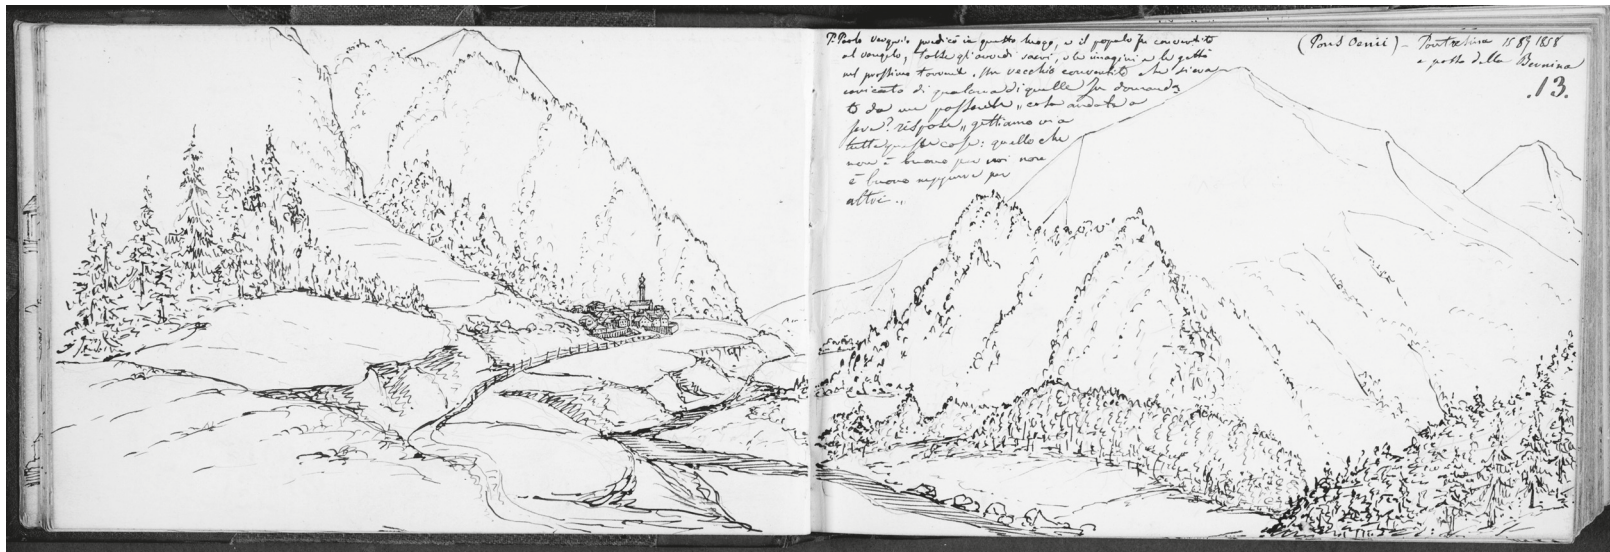 P. Paolo Vergerio predicò in questo luogo, e il popolo fu convertito
al vangelo, tolse gli arredi sacri, e le imagini e le gettò
nel prossimo torrente. Un vecchio convertito che si era
caricato di qualcuna di quelle fu domanda
to da un possente "cosa andate a
fare? rispose "gettiamo via
tutte queste cose: quello che
non è buono per noi non
è buono neppure per
altri".
(Pons Oenii) - Pontresina 1858
a sotto della Bernina
.13.